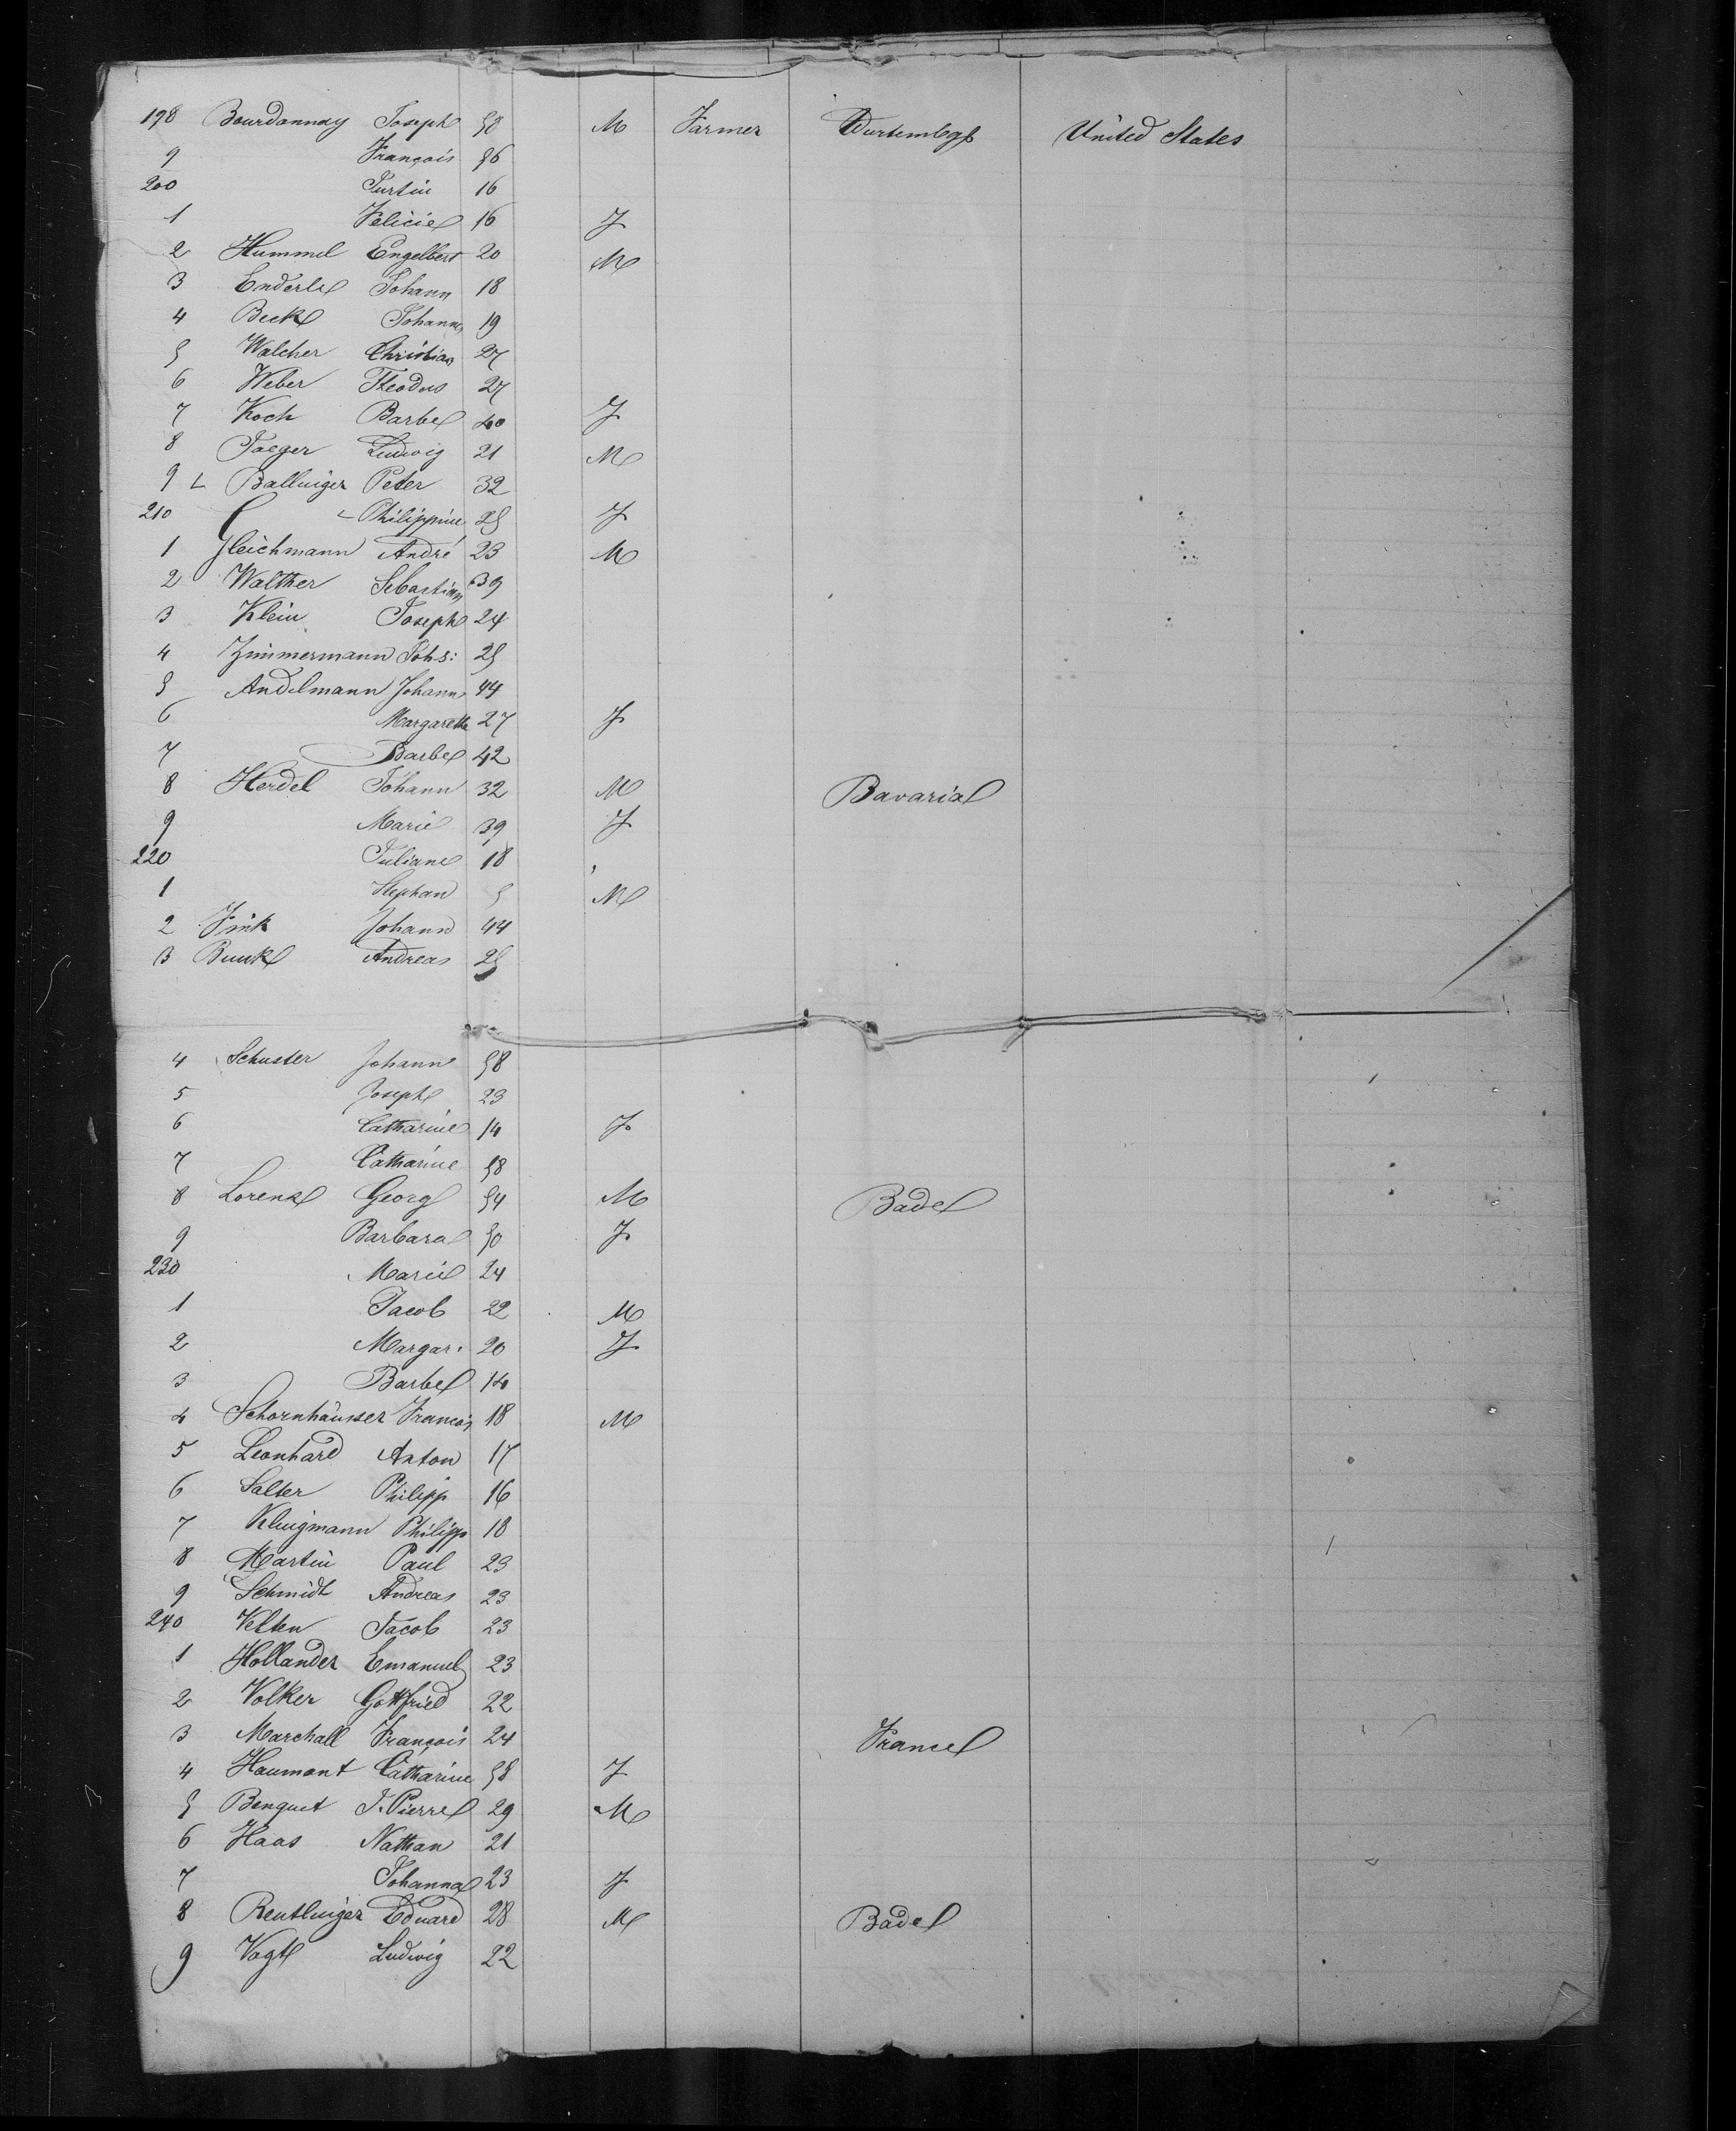 198 Bourdonnay Joseph 58 M Farmer Wurtembgs United States
9 François 56
200 Justin 16
1 Felicie 16 F
2 Hummel Engelbert 20 M
3 Enderle Johann 18
4 Beck Johann 19
5 Walcher Christian 27
6 Weber Theodor 27
7 Koch Barbe 40 F
8 Jaeger Ludwig 21 M
9 Ballinger Peter 32
210 Philippine 25 F
1 Gleichmann André 23 M
2 Walther Sebastian 39
3 Klein Joseph 24
4 Zimmermann Johs: 25
5 Andelmann Johann 44
6 Margareth 27 F
7 Barbe 42
8 Herdel Johann 32 M Bavaria
9 Marie 39 F
220 Juliane 18
1 Stephan 5 M
2 Fink Johann 44
3 Andreas 25
4 Schuster Johann 58
5 Joseph 23
6 Catharine 14 F
7 Catharine 58
8 Lorenz Georg 54 M Bade
9 Barbara 50 F
230 Marie 24
1 Jacob 22 M
2 Margar. 20 F
3 Barbe 14
4 Schornhäusser François 18 M
5 Leonhard Anton 17
6 Salter Philipp 16
7 Klingmann Philipp 18
8 Martin Paul 23
9 Schmidt Andreas 23
240 Velten Jacob 23
1 Hollander Emanuel 23
2 Volker Gottfried 22
3 Marchall François 24 France
4 Haumont Catharine 58 F
5 Benquet J. Pierre 29 M
6 Haas Nathan 21
7 Johanna 23 F
8 Reutlinger Eduard 28 M Bade
9 Vogt Ludwig 22